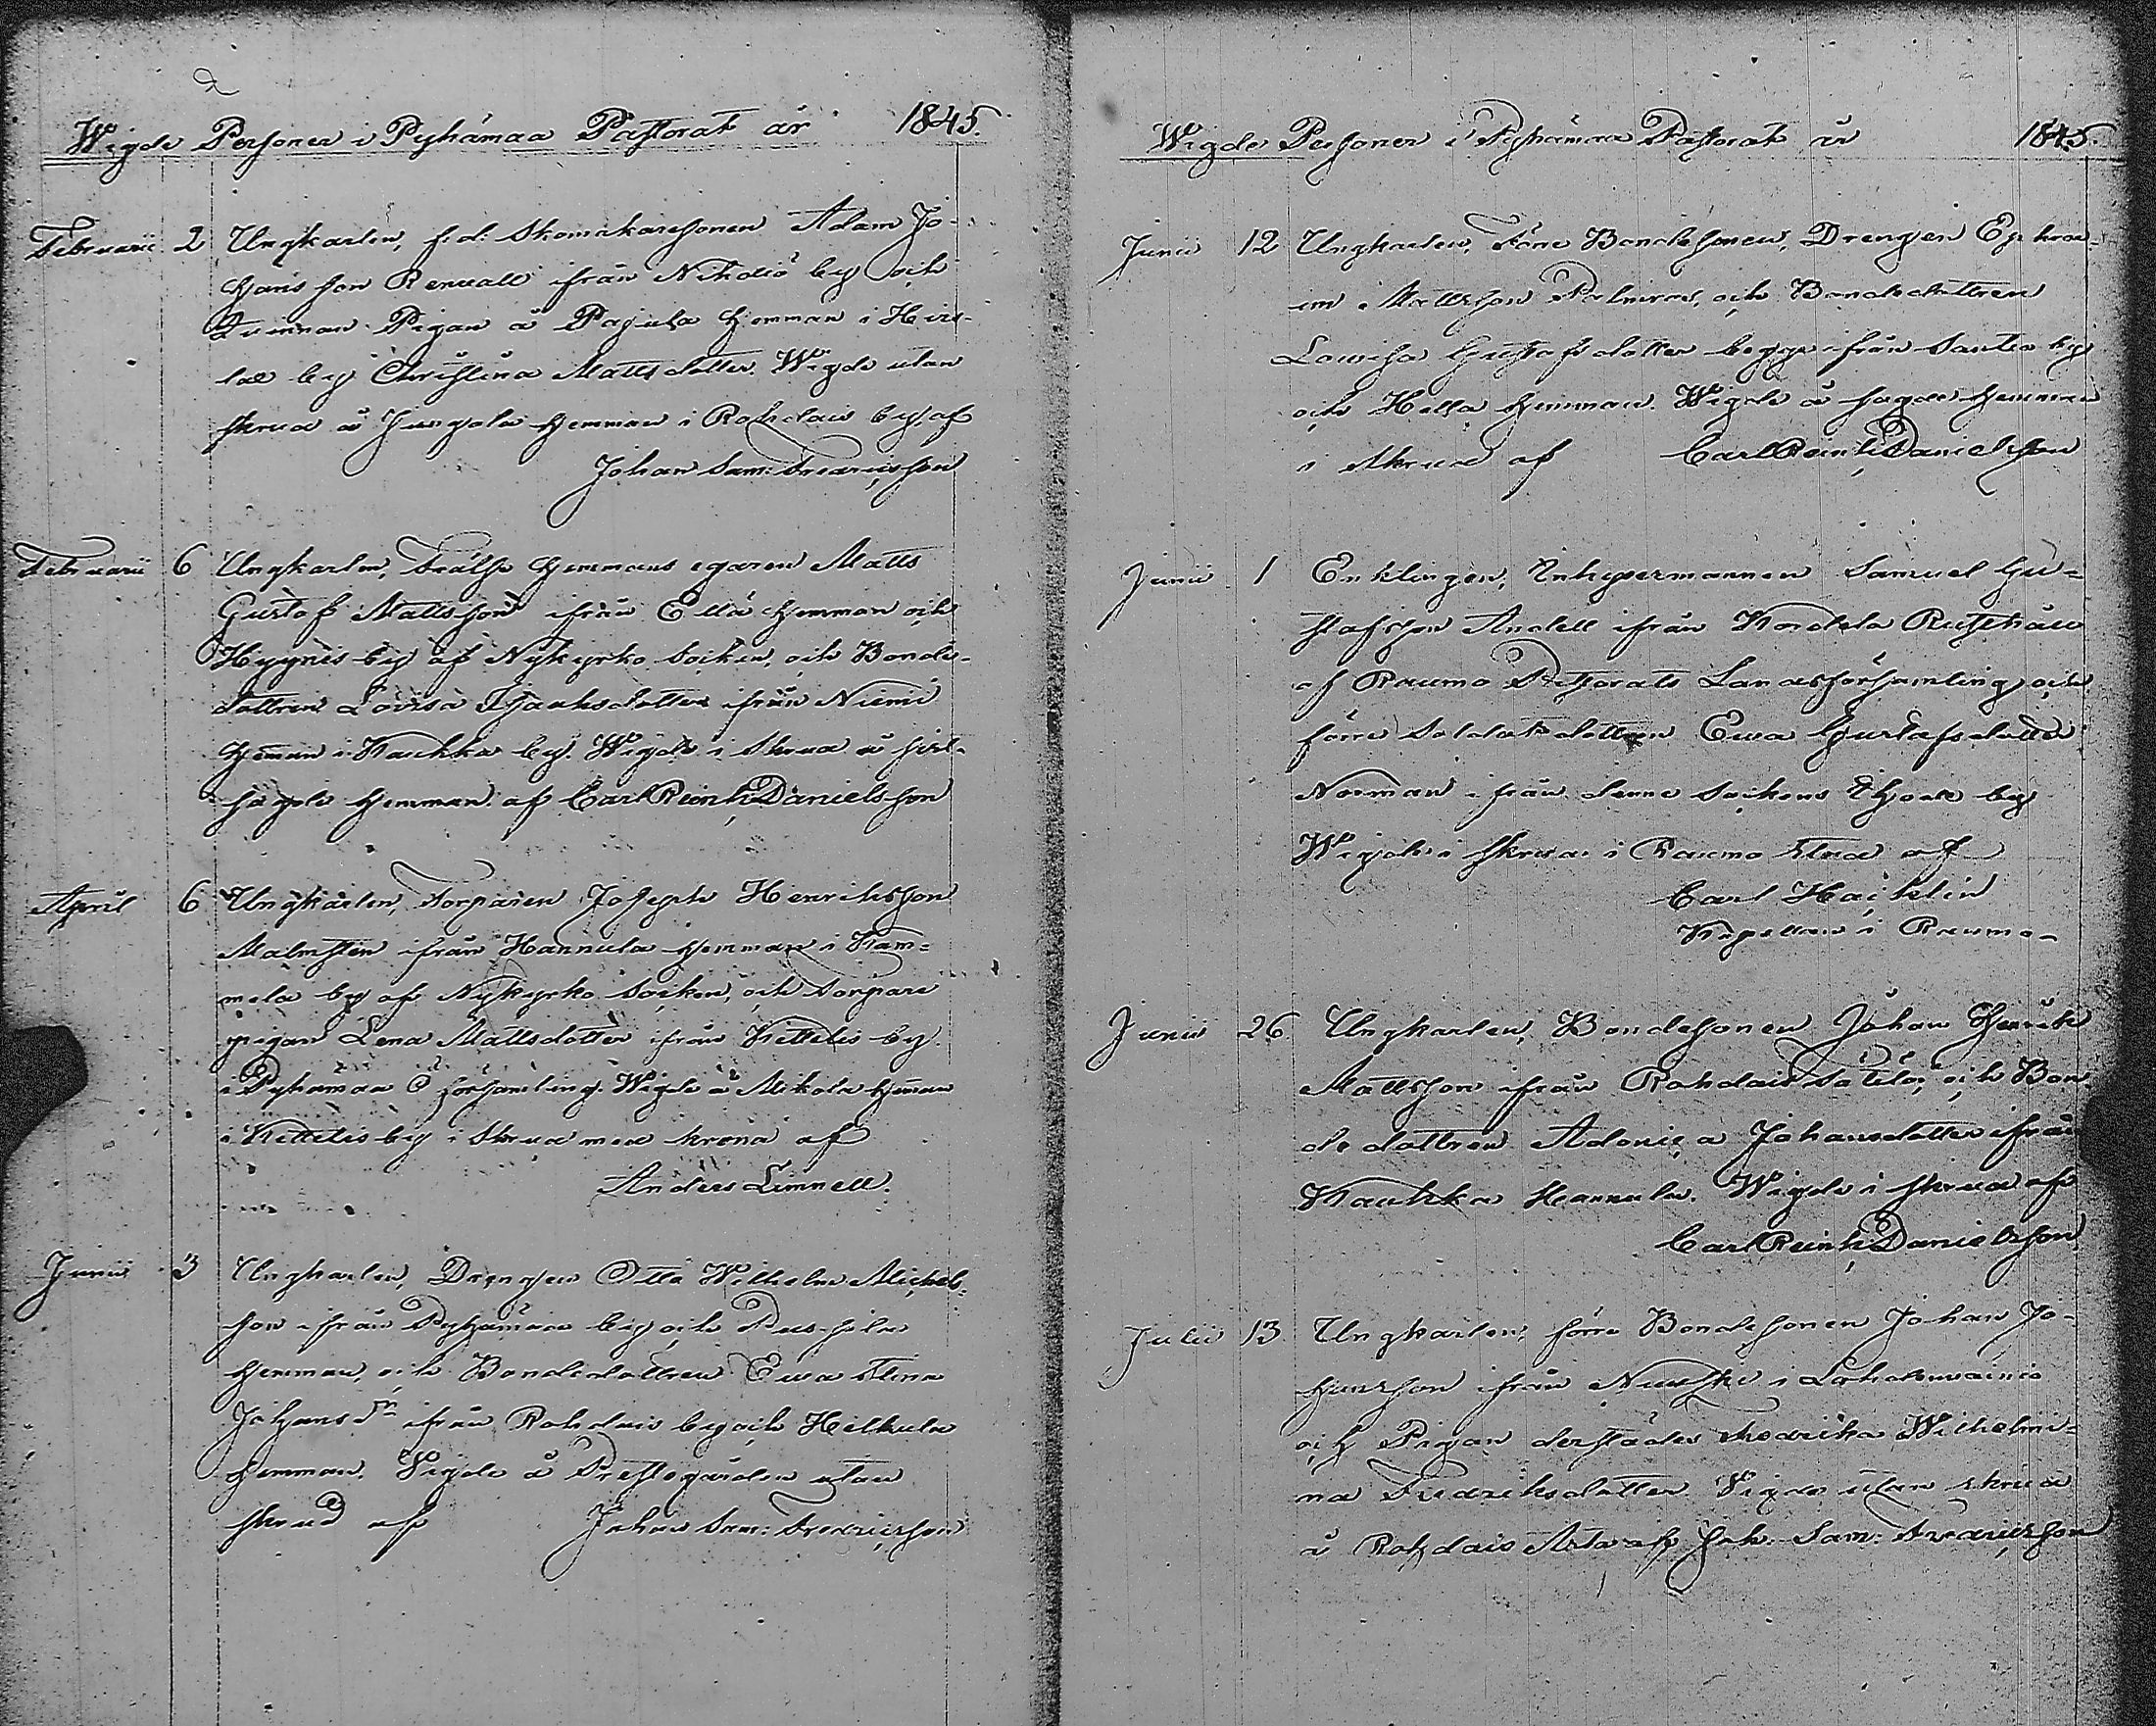 2
Wigde Personer i Pyhämaa Pastorat år 1845.
Februarii 2 Ungkarlen, f.d. Skomakaresonen Adam Jo-
hansson Renvall ifrån Nihdiö by och
Qvinnan Pigan å Pajula Hemman i Hirs-
lax by Christina Mattsdotter. Wigde utan
skrud å Jungola Hemman i Rohdais by, af
Johan Sam: Fredricsson
Februarii 6 Ungkarlen, Frälse Hemmans egaren Matts
Gustaf Mattsson ifrån Ellä Hemman och
Hyynis by af Nykyrko Socken, och Bonde-
dottren Lovisa Isaaksdotter ifrån Niemi
Hemman i Kaukka by. Wigde i Skrud å sist-
sagde Hemman af Carl Reinh. Danielsson
April 6 Ungkarlen, Torparen Joseph Henriksson
Malmstén ifrån Hannula Hemman i Kam-
mela by af Nykyrko Socken, och Torpare
pigan Lena Mattsdotter ifrån Kettelis by
i Pyhämaa Ö församling. Wigde å Mikola Hemman
i Kettelis by i Skrud med krona af
Anders Limnell.
Junii 3 Ungkarlen, Drengen Otto Wilhelm Michels-
son ifrån Pyhämaa by och
Hemman, och Bondedottren Ewa Stina
Johans Dr ifrån Rohdais by och Heikkula
Hemman. Wigde å Prestegården utan
skrud af Johan Sam: Fredricsson
Wigde Personer i Pyhämaa Pastorat år 1845.
Junii 12 Ungkarlen, Förre Bondesonen, Drengen Ephra-
im Mattsson Palmroos, och Bondedottren
Lowisa Gustafsdotter begge ifrån Santio by
och Hella Hemman. Wigde å sagde Hemman
i Skrud af Carl Reinh. Danielsson
Junii 1 Enklingen, Inhysermannen Samuel Gu-
stafsson Andell ifrån Kordela
af Raumo Pastorats Landsförsamling och
förre Soldatsdottren Ewa Gustafsdotter
Norman ifrån denne Sockens by
Wigde i skrud i Raumo Stad af
Carl Hacklin
Kapellan i Raumo
Junii 26 Ungkarlen, Bondesonen Johan Henrik
Mattsson ifrån Rohdais Sätilä, och Bon-
de dottren Adonica Johansdotter ifrån
Kaukka Hannula. Wigde i skrud af
Carl Reinh. Danielsson
Julii 13 Ungkarlen, förre Bondesonen Johan Jo-
hansson ifrån i
och Pigan derstädes Fredrika Wilhelmi-
na Fredriksdotter. Wigde utan skrud
å Rohdais af Joh. Sam: Fredricsson